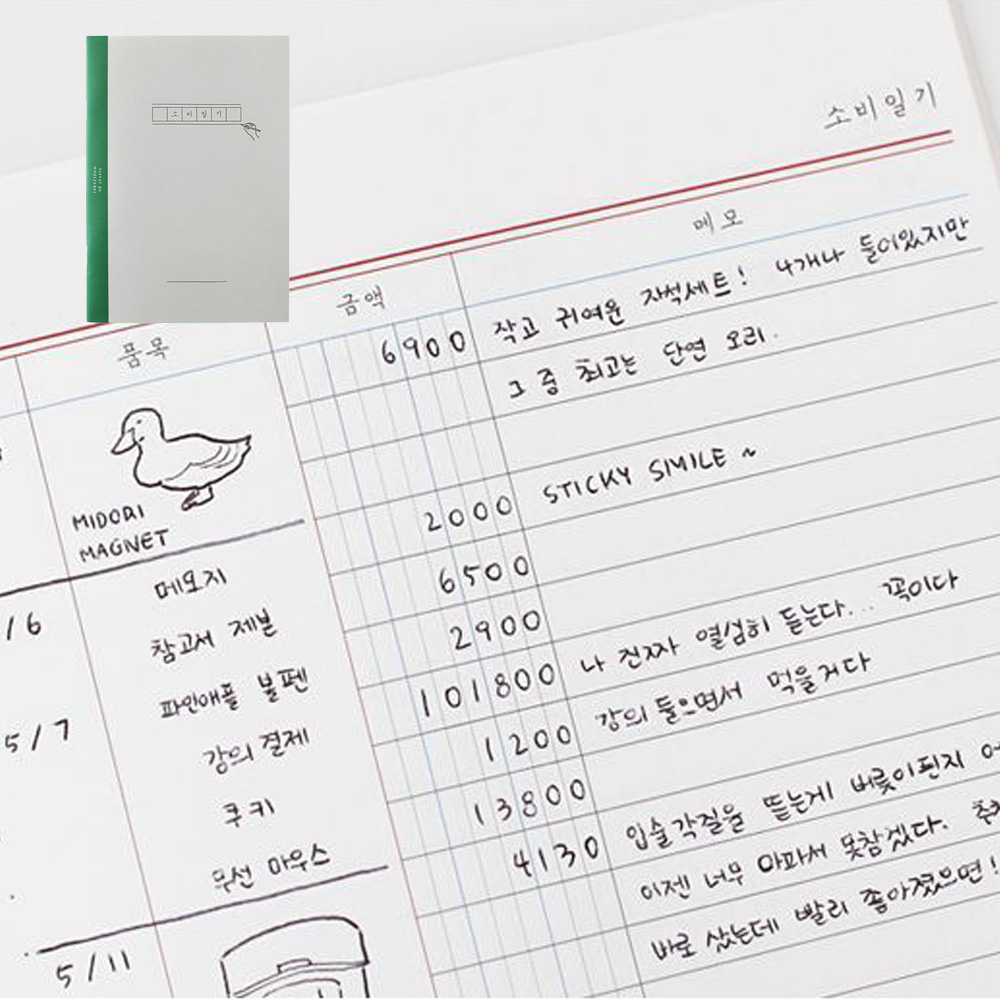 소비일기
소비일기
품목 금액 메모
6900 작고 귀여운 자석세트! 4개나 들어있지만
그 중 최고는 단연 오리.
MIDORI
MAGNET
2000 STICKY SIMILE ~
/6 메모지 6500
참고서 제본 2900
파인애플 볼펜 101800 나 진짜 열심히 듣는다... 꼭이다
5/7 강의 결제 1200 강의 들으면서 먹을거다
쿠키 13800
무선 마우스 4130 입술각질을 뜯는게 버릇이된지
이젠 너무 아파서 못참겠다.
바로 샀는데 빨리 좋아졌으면!
5/11